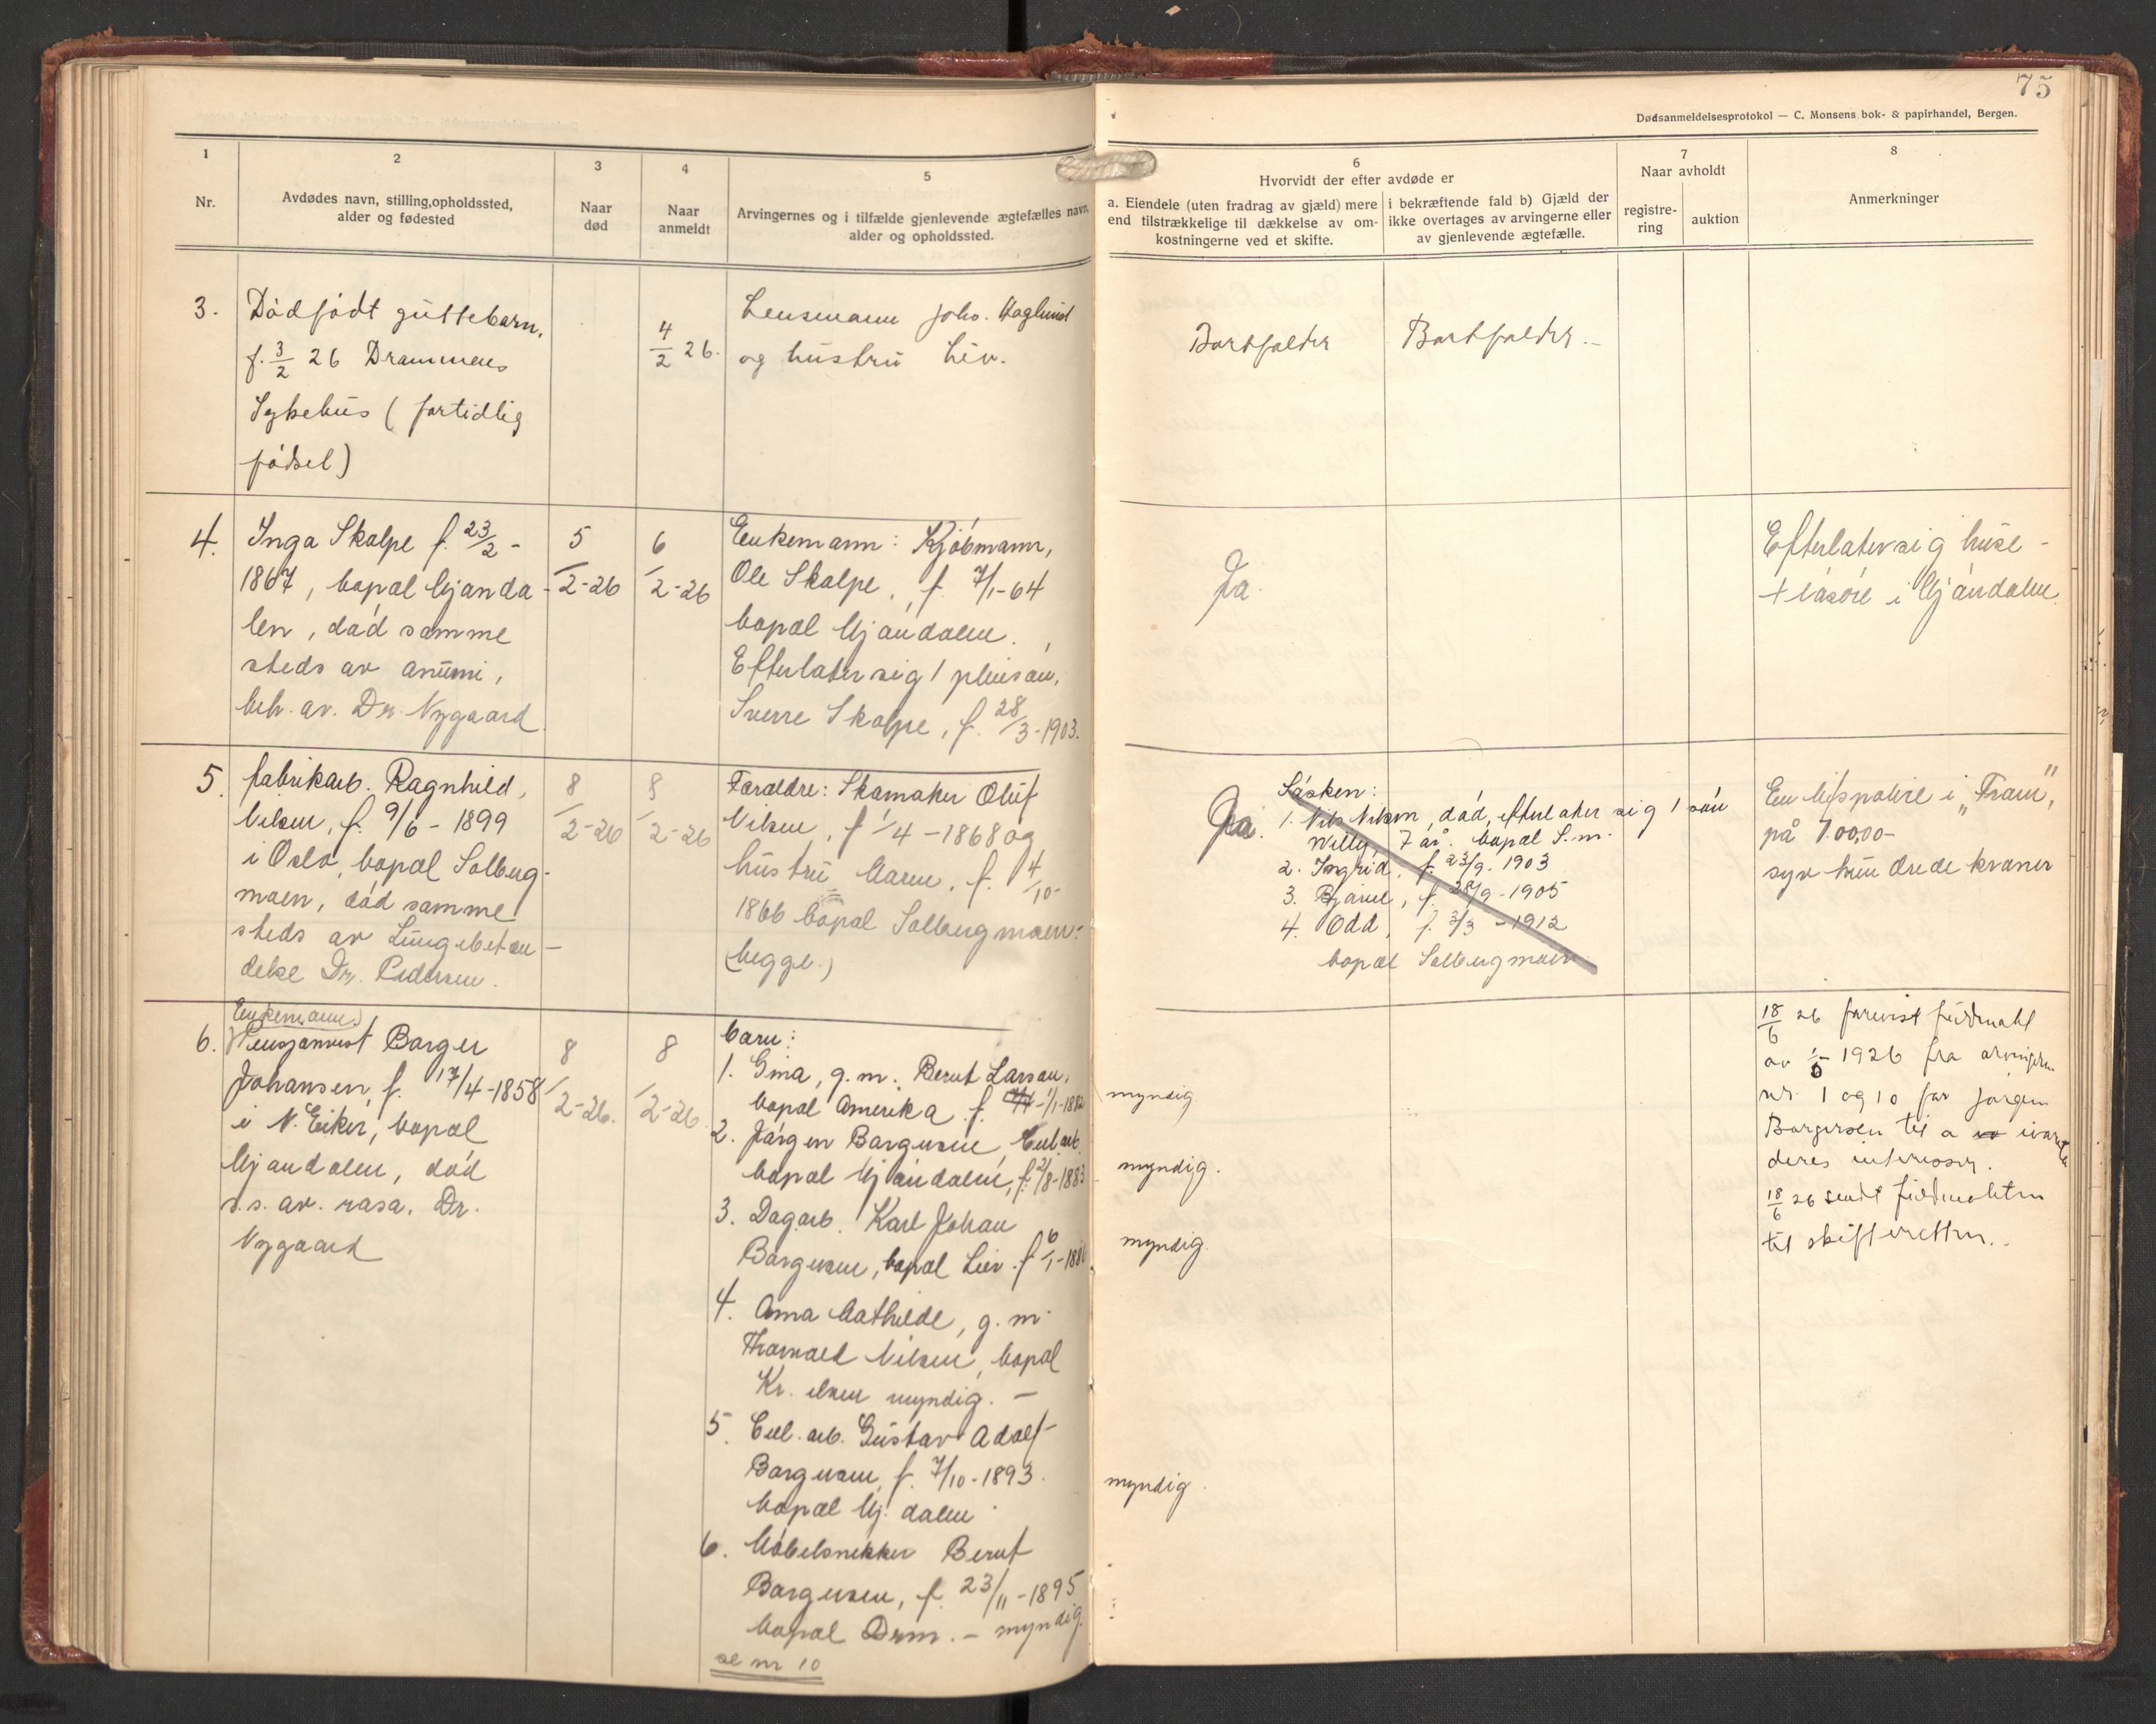 75
Dødsanmeldelsesprotokol — C. Monsens bok- & papirhandel, Bergen.
1
Nr.
2
Avdødes navn, stilling, opholdssted,
alder og fødested
3
Naar
død
4
Naar
anmeldt
5
Arvingernes og i tilfælde gjenlevende ægtefælles navn,
alder og opholdssted.
6
Hvorvidt der efter avdøde er
a. Eiendele (uten fradrag av gjæld) mere
end tilstrækkelige til dækkelse av om-
kostningerne ved et skifte.
i bekræftende fald b) Gjæld der
ikke overtages av arvingerne eller
av gjenlevende ægtefælle.
7
Naar avholdt
registre-
ring
auktion
8
Anmerkninger
3.
Dødfødt guttebarn,
f. 3/2 26 Drammens
Sykehus ( fortidlig
fødsel)
4/2 26.
Lensmann Johs. Haglund
og hustru Liv.
Bortfalder
Bortfalder.-
4.
Inga Skalpe f. 23/2 -
1867, bopæl Mjønda-
len, død samme
steds av anemi,
beh. av. Dr. Nygaard
5/2-26
6/2-26
Enkemann: Kjøbmann,
Ole Skalpe, f. 7/1-64
bopæl Mjøndalen.
Efterlater sig 1 pleiesøn,
Sverre Skalpe, f. 28/3-1903.
Ja.
Efterlater sig huse-
+ løsøre i Mjøndalen.
5.
Fabrikarb. Ragnhild,
Nilsen, f. 9/6 - 1899
i Oslo, bopæl Solberg-
moen, død samme
steds av Lungebeten-
delse Dr. Pedersen.
8/2-26
8/2-26
Forældre: Skomaker Oluf
Nilsen, f 1/4 - 1868 og
hustru Maren, f. 4/10-
1866 bopæl Solbergmoen-
(begge.)
Ja.
Søsken:
1. Nils Nilsen, død, efterlater sig 1 søn
Willy, 7 år. bopæl S.m.
2. Ingrid, f. 23/9-1903
3. Bjarne, f. 28/9-1905
4. Odd, f. 3/3 -1912
bopæl Solbergmoen
En lifspolise i „Fram",
på 700,00-
syv hundrede kroner
6.
Enkemann.)
Pensjonist Borger
Johansen, f. 17/4-1858
i N. Eiker, bopæl
Mjøndalen, død
s.s. av. rosa. Dr.
Nygaard
8/2-26.
8/2-26
barn:
1. Gina, g.m. Bernt Larsen,
bopæl Amerika f. 1/1-1882
2. Jørgen Borgersen, Cel.arb.
bopæl Mjøndalen, f. 2/8-1883
3. Dagarb. Karl Johan
Borgersen, bopæl Lier. f 6/1-188
4. Anna Mathilde, g. m.
Thorvald Nilsen, bopæl
Kr. elven myndig. -
5. Cel. arb. Gustav Adolf
Borgersen, f. 7/10-1893.
bopæl Mj. dalen
6. Møbelsnekker Bernt
Borgersen, f. 23/11-1895
bopæl Drm. - myndig.
se nr 10
myndig
myndig.
myndig.
myndig.
18/6 26 forevist fuldmakt
av 1926 fra arvingerne
nr. 1 og 10 for Jørgen
Borgersen til å
deres interesser.
18/6 26 sendt fuldmakten
til skifteretten..